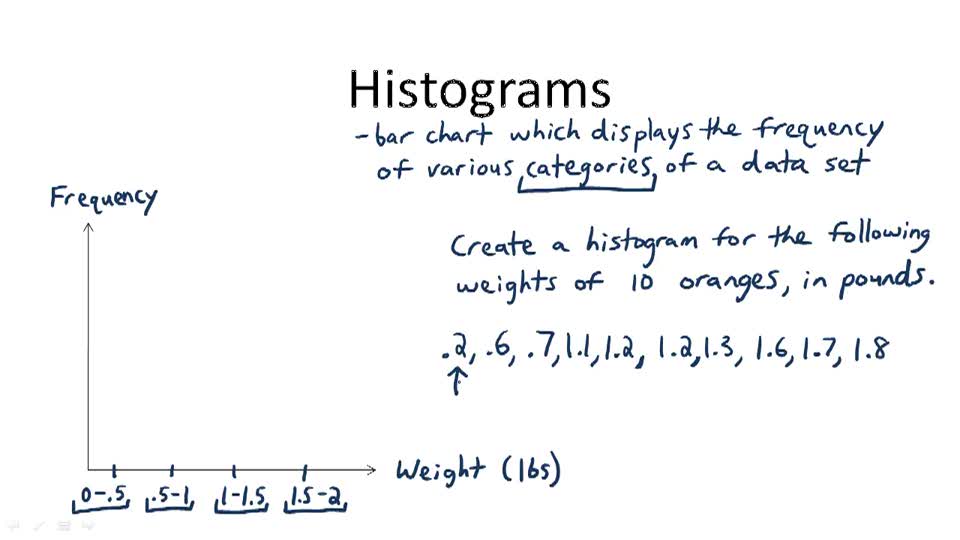 Histograms
-bar chart which displays the frequency
of various categories, of a data set
Frequency
Create a histogram for the following
weights of 10 oranges, in pounds.
.2, .6, .7, 1.1, 1.2, 1.2, 1.3, 1.6, 1.7, 1.8
Weight (lbs)
0-.5 .5-1 1-1.5 1.5-2